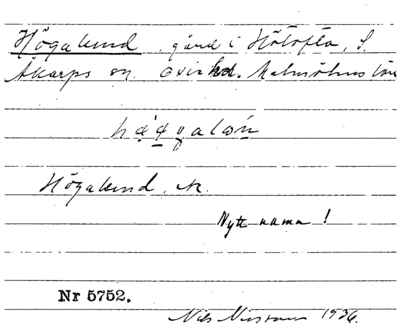 Högalund, gård i Hötofta, S.
Åkarps sn. Oxie hd. Malmöhus län
Högalund, n.
Nytt namn!
Nr 5752.
Nils 1936.